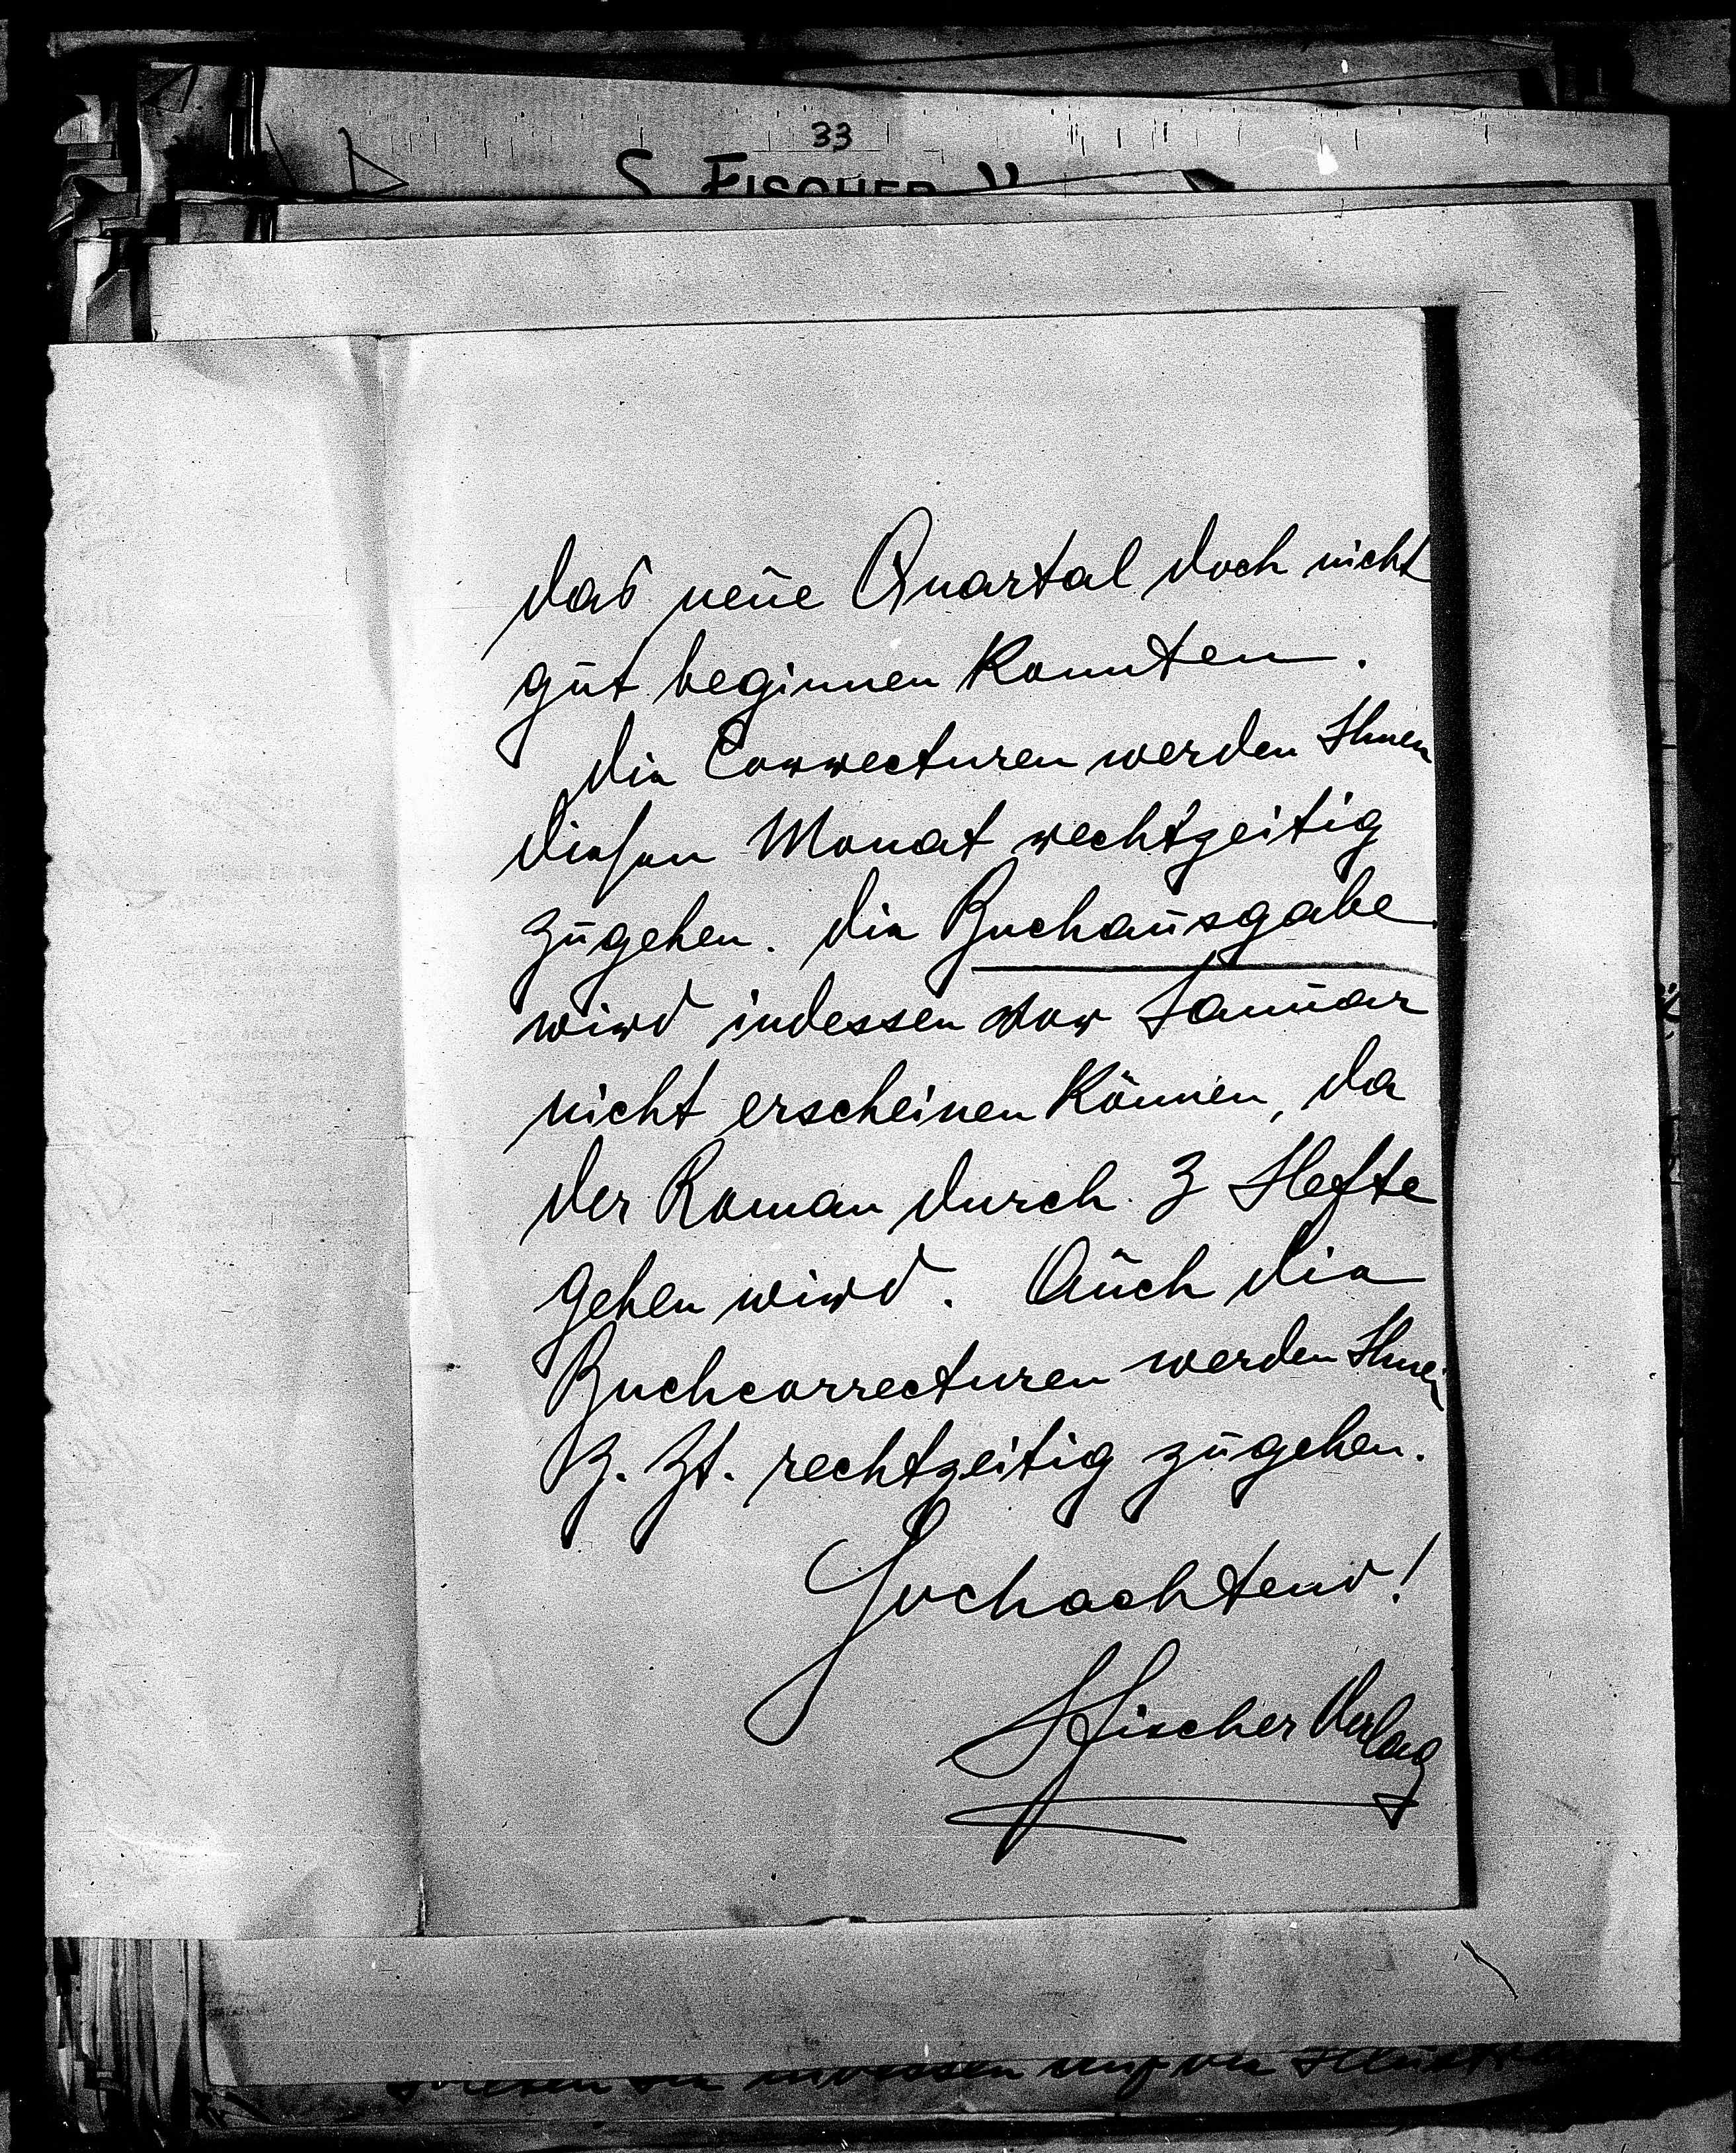 33
S. FISCHER V
das neue Quartal doch nicht
gut beginnen konnten.
Die Correcturen werden Ihnen
diesen Monat rechtzeitig
zugehen. Die Buchausgabe
wird indessen vor Januar
nicht erscheinen können, da
der Roman durch 3 Hefte
gehen wird. Auch die
Buchcorrecturen werden Ihnen
z. Zt. rechtzeitig zugehen.
Hochachtend!
S Fischer Verlag